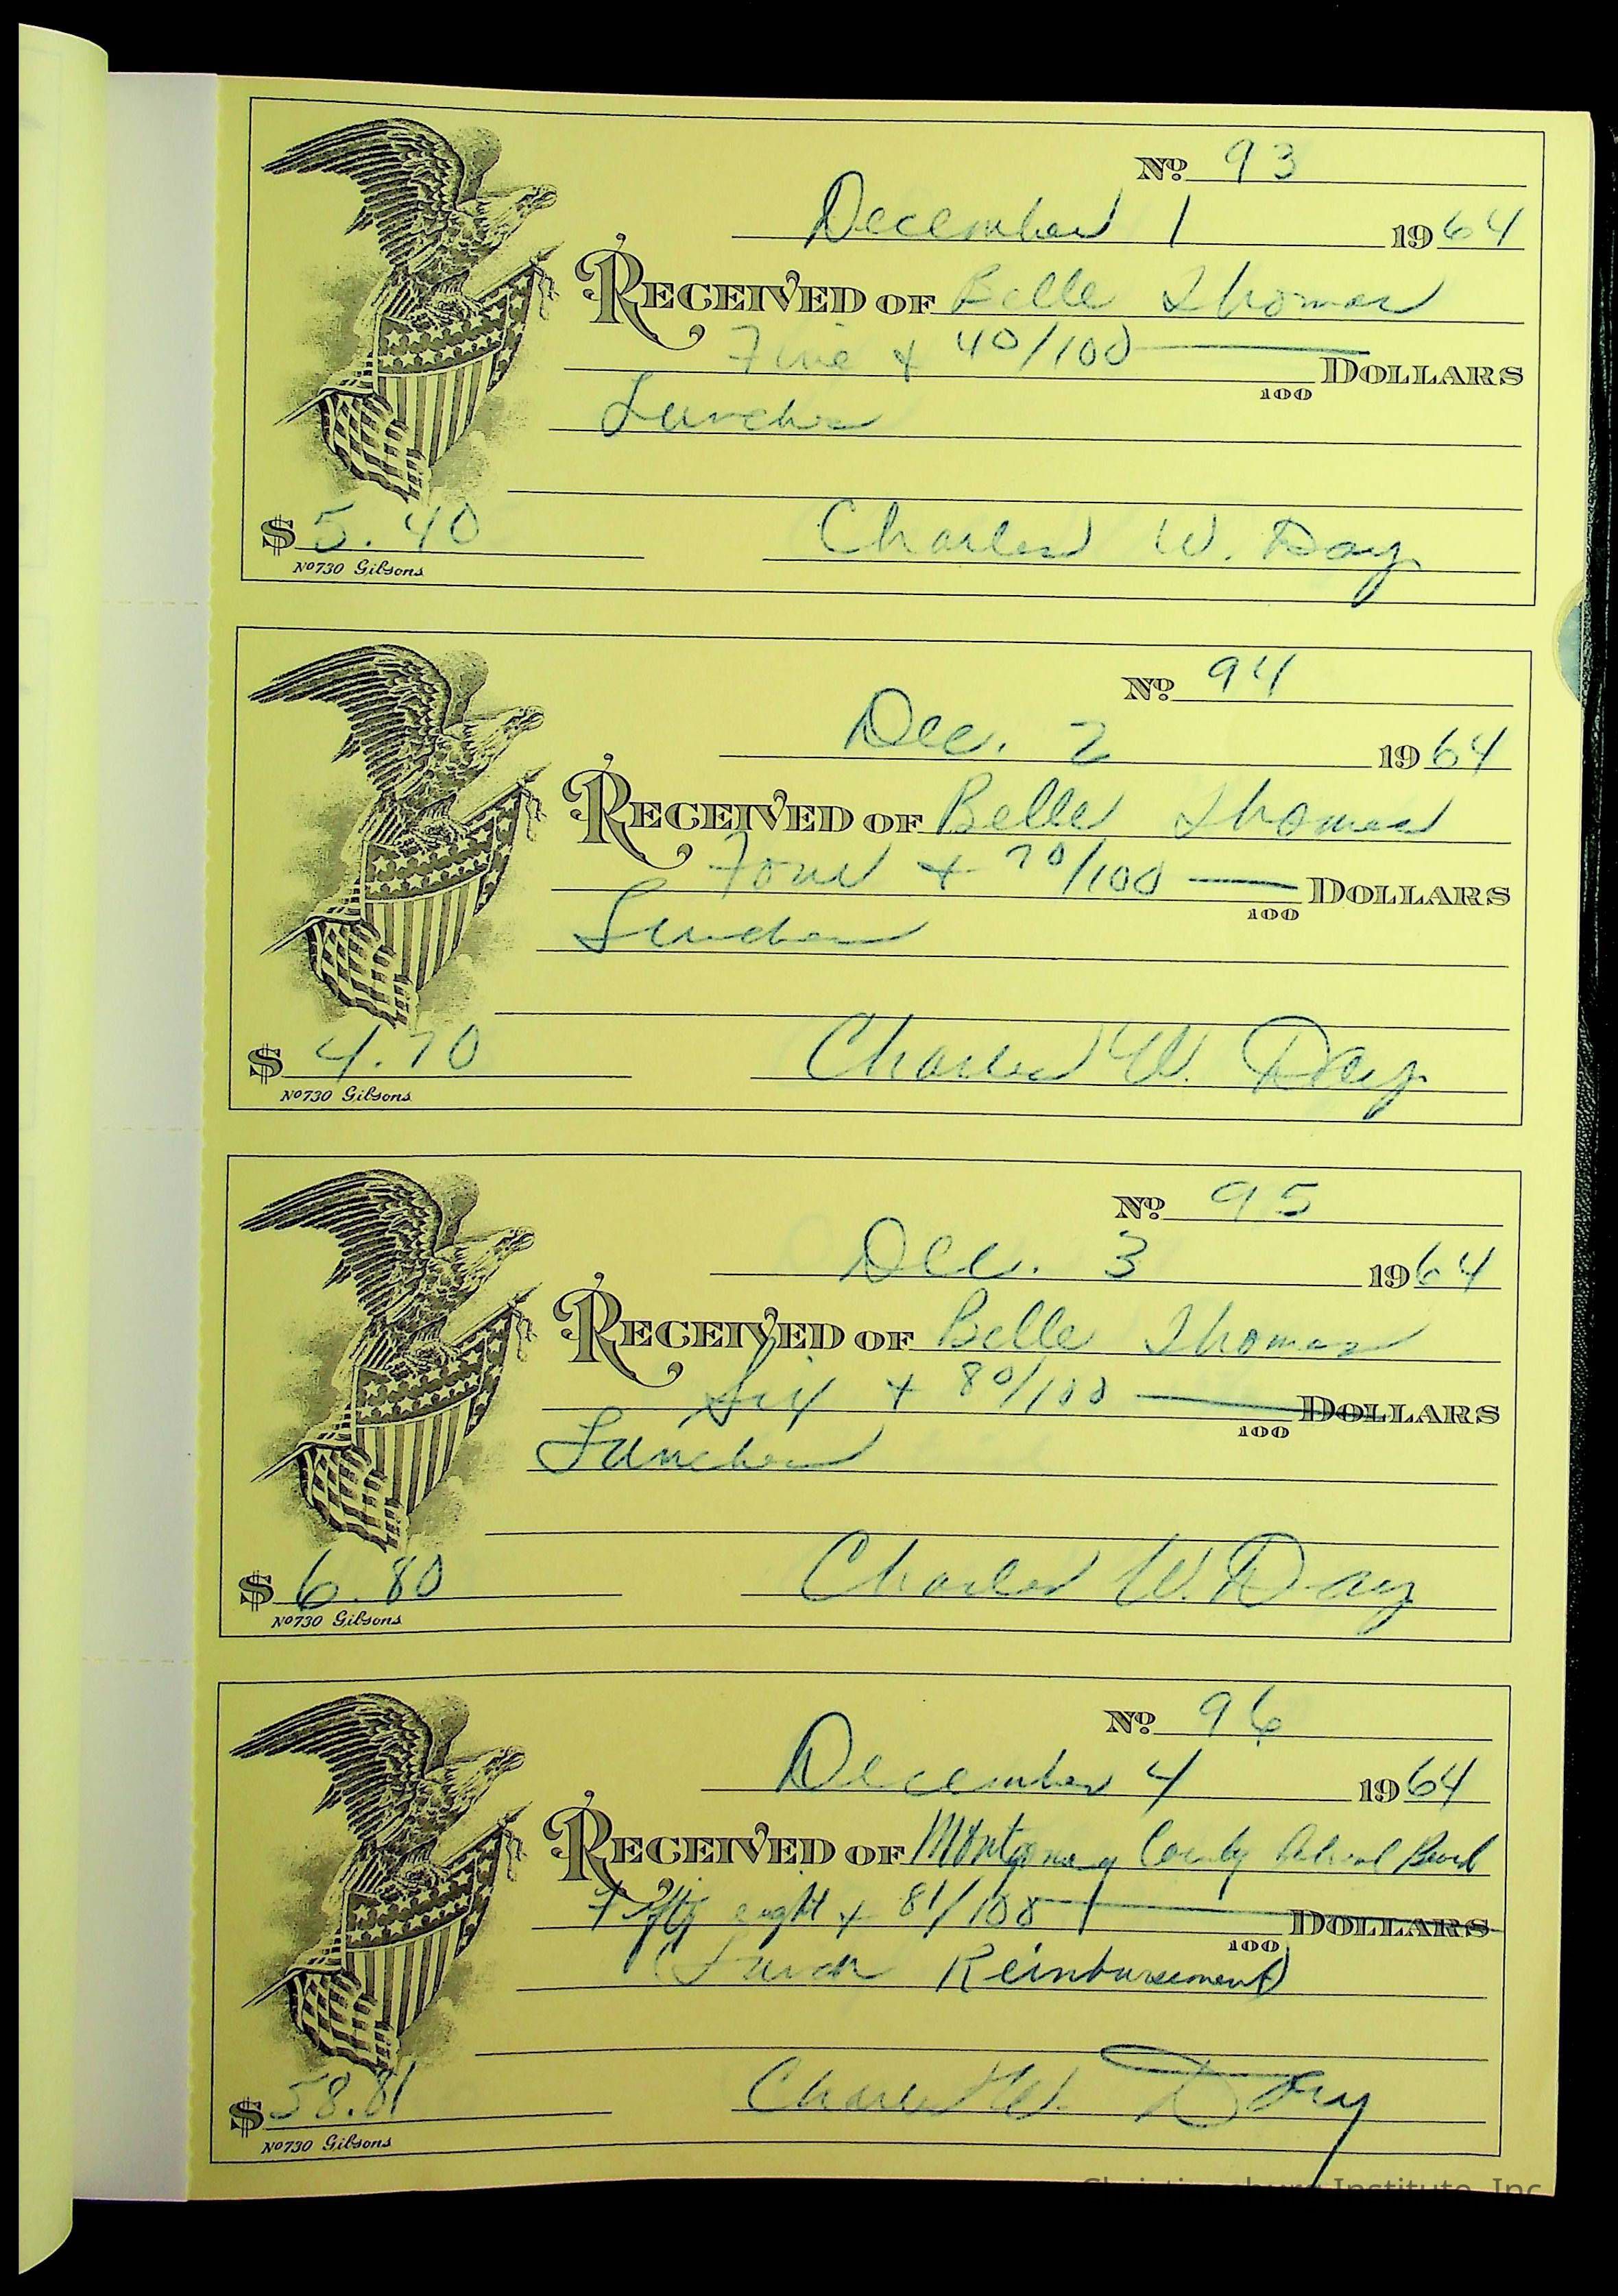 No. 93
December 1 1964
RECEIVED OF Belle Thomas
Five + 40/100 DOLLARS
100
Lunches
$ 5.40 Charles W. Day
No 730 Gibsons
No. 94
Dec. 2 1964
RECEIVED OF Belle Thomas
Four + 70/100 DOLLARS
100
Lunches
$ 4.70 Charles W. Day
No 730 Gibsons
No. 95
Dec. 3 1964
RECEIVED OF Belle Thomas
Six + 80/100 DOLLARS
100
Lunches
$ 6.80 Charles W. Day
No 730 Gibsons
No. 96
December 4 1964
RECEIVED OF Montgomery County School Board
Fifty eight + 81/100 DOLLARS
100
(Lunch Reinbursement)
$ 58.81 Charles W. Day
No 730 Gibsons
Christiansburg Institute, Inc